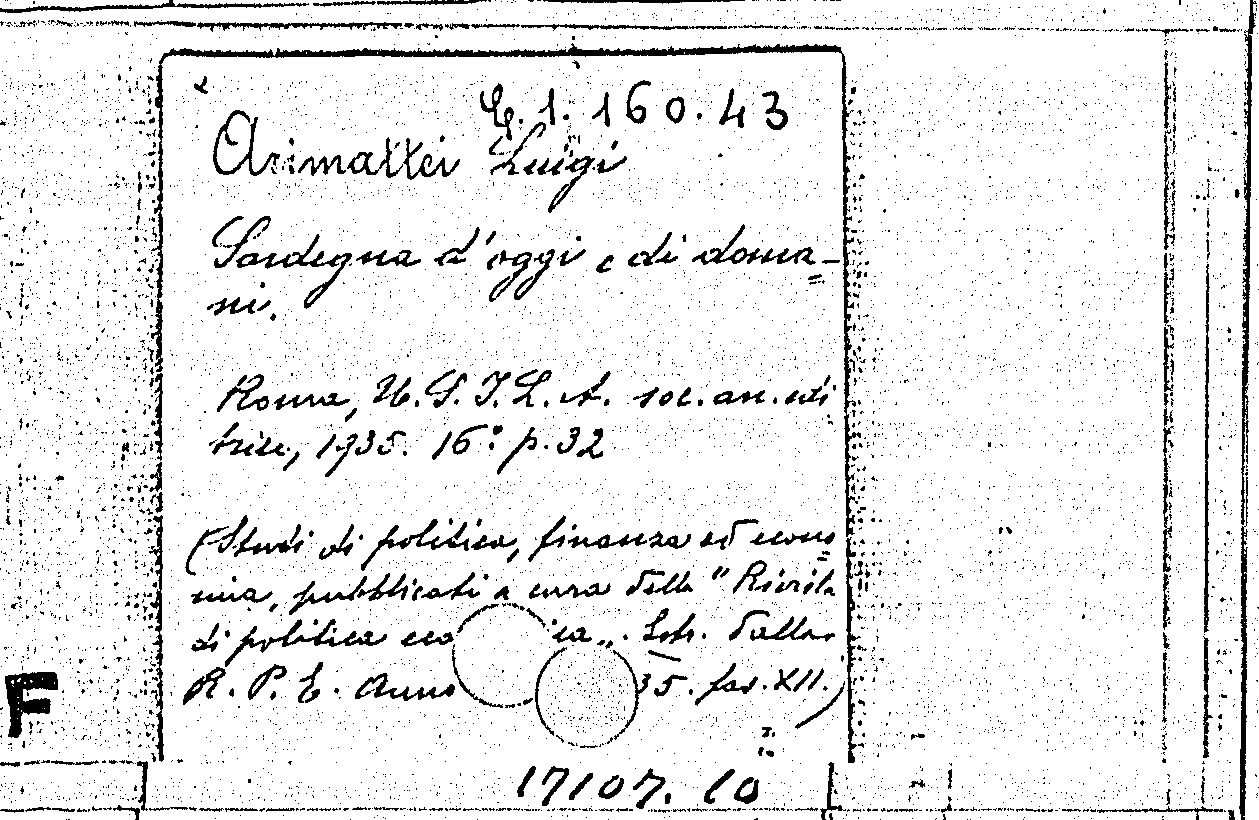 C.1.160.43
Arimattei Luigi
Sardegna d'oggi e di doma=
ni.
Roma, U.S.I.L.A. soc. an. edi
trice, 1935. 16° p. 32
(Studi di politica, finanza ed econo
mia, pubblicati a cura della "Rivista
di politica eco ica". Estr. dalla
R. P. E. Anno 35. fas. XII.)
17107. 10
F